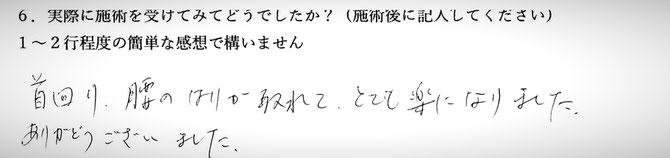 6．実際に施術を受けてみてどうでしたか？（施術後に記入してください）
1～2行程度の簡単な感想で構いません
首回り、腰のはりが取れて、とても楽になりました。
ありがとうございました。